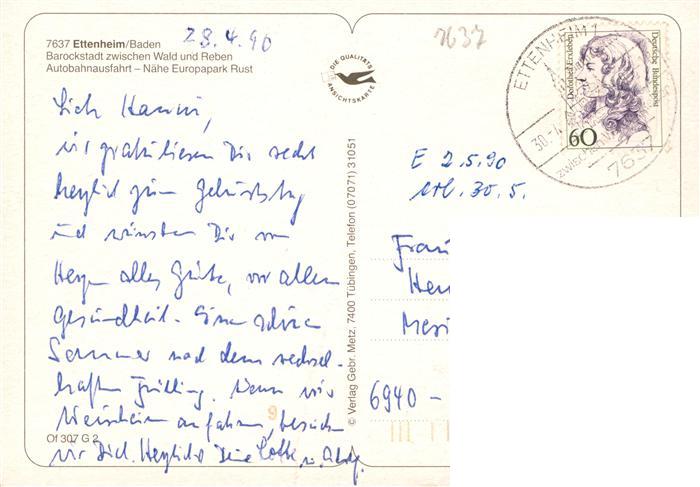 28.4.90
7637
7637 Ettenheim/Baden
Barockstadt zwischen Wald und Reben
Autobahnausfahrt – Nähe Europapark Rust
DIE QUALITÄTS
ANSICHTSKARTE
ETTENHEIM 1
30.-4
zwischen
7637
Dorothea Erxleben
Deutsche Bundespost
60
wir gratulieren Dir recht
herzlich zum Geburtstag
und wünschen Dir von
Herzen alles Gute, vor allem
Gesundheit. Einen schönen
Sommer nach dem wechsel-
haften Frühling. Wenn wir
Weinheim anfahren, besuchen
wir Dich. Herzlichst Deine Lotte u.
Of 307 G 2
© Verlag Gebr. Metz, 7400 Tübingen, Telefon (07071) 31051
E 2.5.90
erl. 30.5.
Frau
6940 -
9